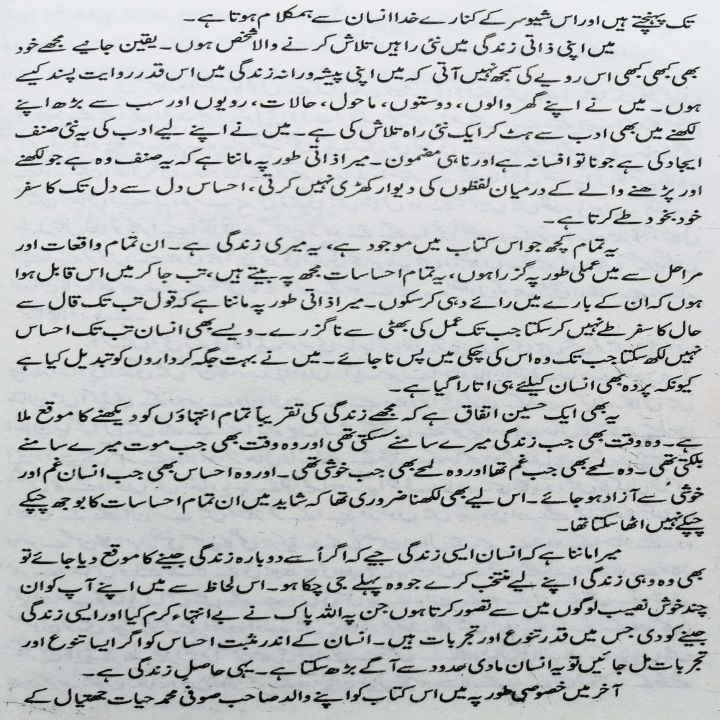 تک پہنچتے ہیں اور اس شیو سر کے کنارے خدا انسان سے ہمکلام ہوتا ہے۔
میں اپنی ذاتی زندگی میں نئی راہیں تلاش کرنے والا شخص ہوں۔ یقین جانیے مجھے خود
بھی کبھی کبھی اس رویے کی سمجھ نہیں آتی کہ میں اپنی پیشہ ورانہ زندگی میں اس قدر روایت پسند کیسے
ہوں۔ میں نے اپنے گھر والوں، دوستوں، ماحول، حالات، رویوں اور سب سے بڑھ اپنے
لکھنے میں بھی ادب سے ہٹ کر ایک نئی راہ تلاش کی ہے۔ میں نے اپنے لیے ادب کی یہ نئی صنف
ایجاد کی ہے جو نا تو افسانہ ہے اور نا ہی مضمون۔ میرا ذاتی طور پہ ماننا ہے کہ یہ صنف وہ ہے جو لکھنے
اور پڑھنے والے کے درمیان لفظوں کی دیوار کھڑی نہیں کرتی، احساس دل سے دل تک کا سفر
خود بخود طے کرتا ہے۔
یہ تمام کچھ جو اس کتاب میں موجود ہے، یہ میری زندگی ہے۔ ان تمام واقعات اور
مراحل سے میں عملی طور پہ گزرا ہوں، یہ تمام احساسات مجھ پہ بیتے ہیں، تب جا کر میں اس قابل ہوا
ہوں کہ ان کے بارے میں رائے دہی کر سکوں۔ میرا ذاتی طور پہ ماننا ہے کہ قول تب تک قال سے
حال کا سفر طے نہیں کر سکتا جب تک عمل کی بھٹی سے نا گزرے۔ ویسے بھی انسان تب تک احساس
نہیں لکھ سکتا جب تک وہ اس کی چکی میں پس نا جائے۔ میں نے بہت جگہ کرداروں کو تبدیل کیا ہے
کیونکہ پردہ بھی انسان کیلئے ہی اتارا گیا ہے۔
یہ بھی ایک حسین اتفاق ہے کہ مجھے زندگی کی تقریباً تمام انتہاؤں کو دیکھنے کا موقع ملا
ہے۔ وہ وقت بھی جب زندگی میرے سامنے سسکتی تھی اور وہ وقت بھی جب موت میرے سامنے
بلکتی تھی۔ وہ لمحے بھی جب غم تھا اور وہ لمحے بھی جب خوشی تھی۔ اور وہ احساس بھی جب انسان غم اور
خوشی سے آزاد ہو جائے۔ اس لیے بھی لکھنا ضروری تھا کہ شاید میں ان تمام احساسات کا بوجھ چپکے
چپکے نہیں اٹھا سکتا تھا۔
میرا ماننا ہے کہ انسان ایسی زندگی جیے کہ اگر اُسے دوبارہ زندگی جینے کا موقع دیا جائے تو
بھی وہ وہی زندگی اپنے لیے منتخب کرے جو وہ پہلے جی چکا ہو۔ اس لحاظ سے میں اپنے آپ کو ان
چند خوش نصیب لوگوں میں سے تصور کرتا ہوں جن پہ اللہ پاک نے بے انتہاء کرم کیا اور ایسی زندگی
جینے کو دی جس میں قدر تنوع اور تجربات ہیں۔ انسان کے اندر مثبت احساس کو اگر ایسا تنوع اور
تجربات مل جائیں تو یہ انسان مادی حدود سے آگے بڑھ سکتا ہے۔ یہی حاصلِ زندگی ہے۔
آخر میں خصوصی طور پہ میں اس کتاب کو اپنے والد صاحب صوفی محمد حیات جھتیال کے